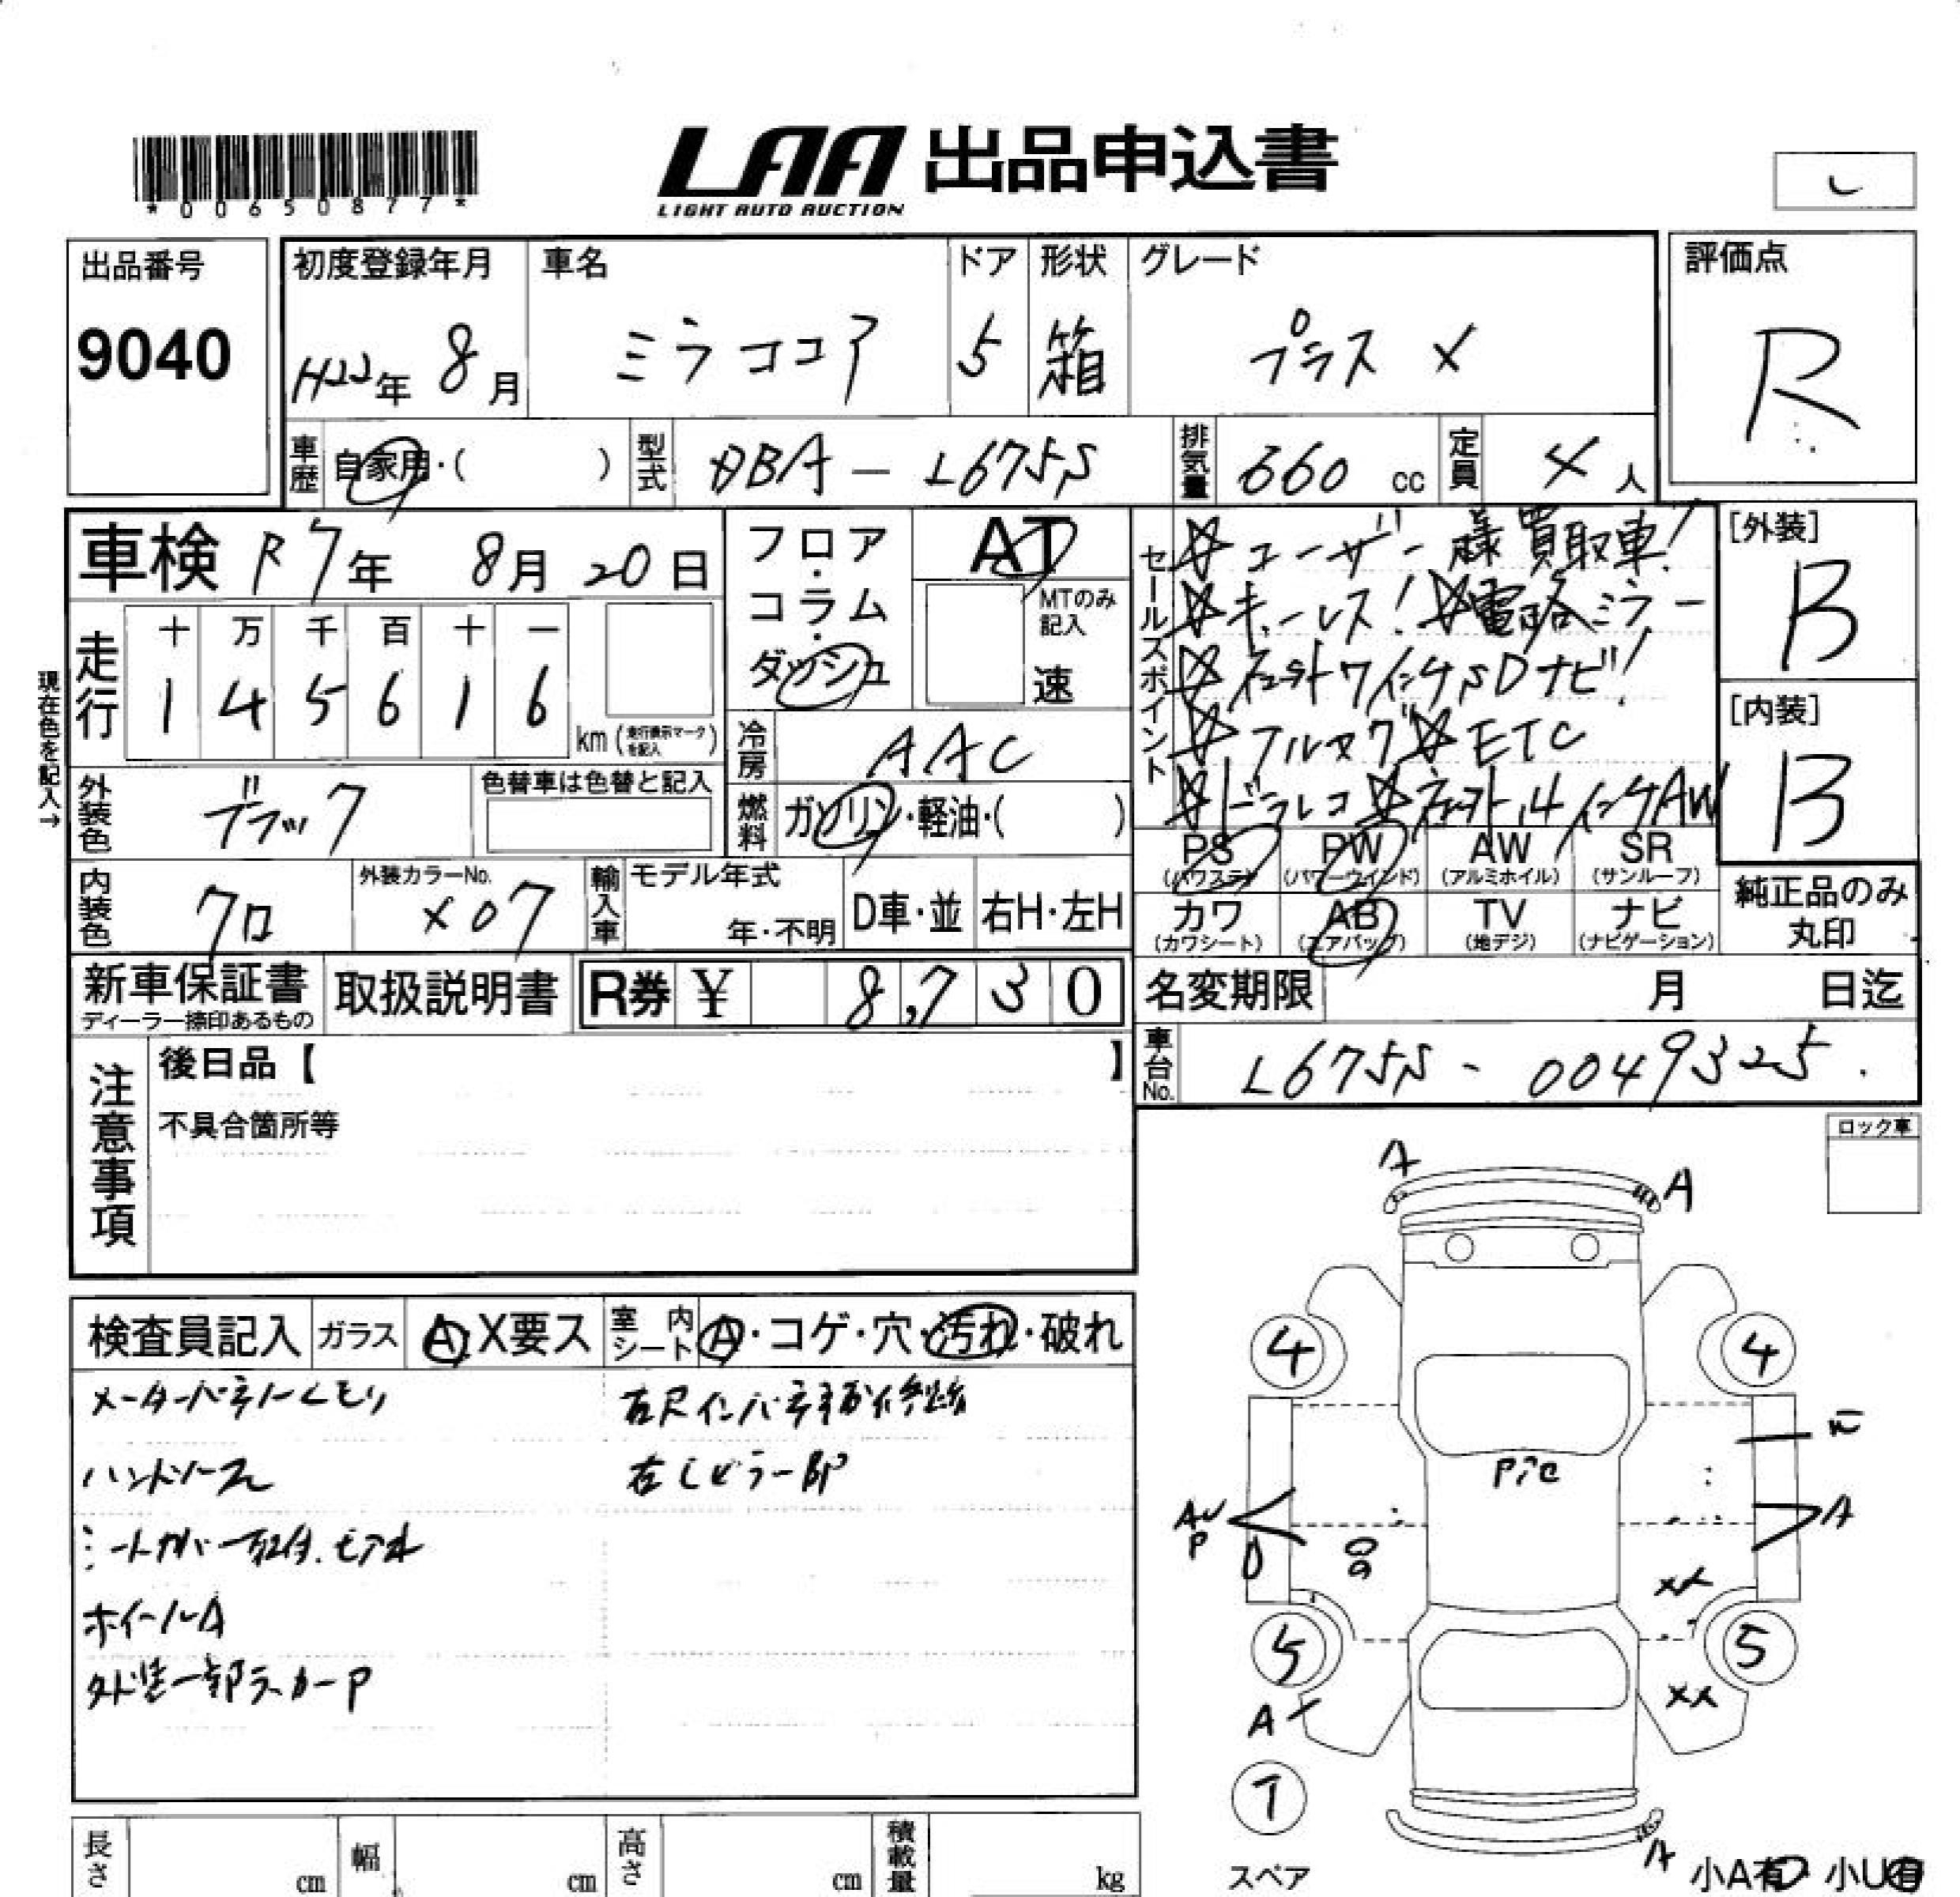 *00650877*
LAA 出品申込書
LIGHT AUTO AUCTION
出品番号
9040
初度登録年月
H22年 8月
車名
ミラココア
ドア
5
形状
箱
グレード
プラス X
評価点
R
車歴 自家用・( )
型式 DBA-L675S
排気量 660 cc
定員 4人
車検 R7年 8月 20日
現在色を記入→
走行
十 万 千 百 十 一
1 4 5 6 1 6
km(走行表示マークを記入)
フロア・コラム・ダッシュ
AT
MTのみ記入
速
冷房 AAC
燃料 ガソリン・軽油・( )
外装色 ブラック
色替車は色替と記入
内装色 クロ
外装カラーNo.
X07
輸入車
モデル年式
年・不明
D車・並
右H・左H
セールスポイント
☆ユーザー様買取車!
☆キーレス!☆電格ミラー
SDナビ!
☆フルセグ☆ETC
☆ドラレコ
AW
[外装]
B
[内装]
B
PS (パワステ)
PW (パワーウインド)
AW (アルミホイル)
SR (サンルーフ)
カワ (カワシート)
AB (エアバッグ)
TV (地デジ)
ナビ (ナビゲーション)
純正品のみ丸印
新車保証書
ディーラー捺印あるもの
取扱説明書
R券 ¥ 8,730
名変期限 月 日迄
車台No. L675S-0049325
注意事項
後日品【 】
不具合箇所等
ロック車
検査員記入
ガラス A・X要ス
室内シート A・コゲ・穴・汚れ・破れ
メーターパネルくもり
右Rインパネ
ハンドルスレ
右Cピラー
シートカバー
ホイールA
外装一部ラッカーP
A
A
4
4
Pick
A
P
A
XX
5
5
XX
A
T
A
スペア
小A有・小U有
長さ cm
幅 cm
高さ cm
積載量 kg